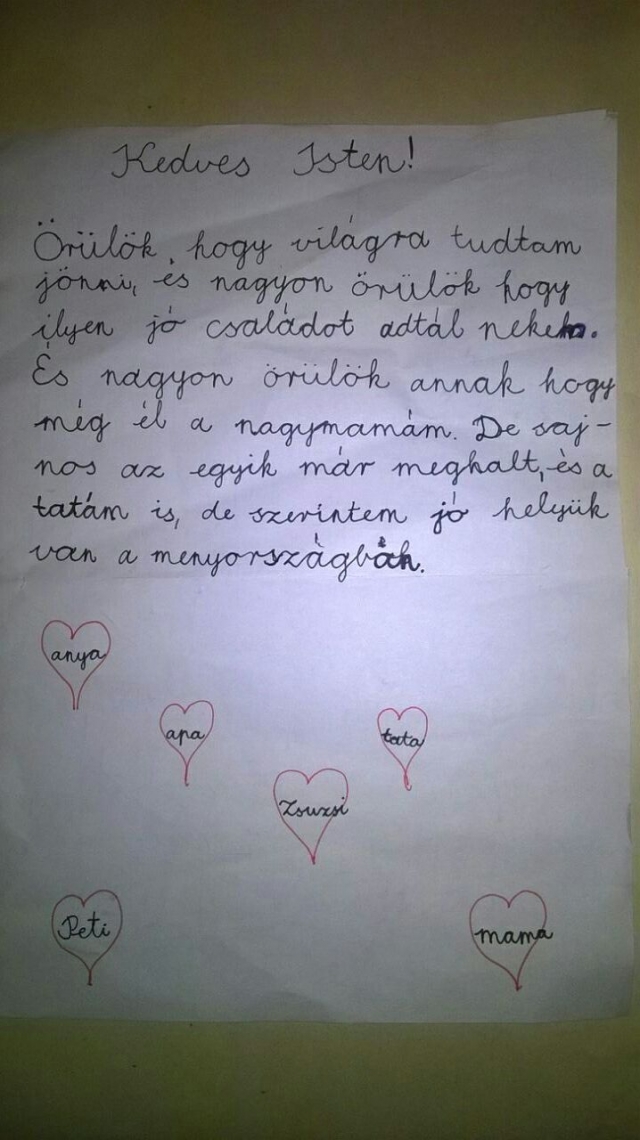 Kedves Isten!
Örülök, hogy világra tudtam
jönni, és nagyon örülök hogy
ilyen jó családot adtál nekem.
És nagyon örülök annak hogy
még él a nagymamám. De saj-
nos az egyik már meghalt, és a
tatám is, de szerintem jó helyük
van a menyországban.
anya
apa
tata
Zsuzsi
Peti
mama